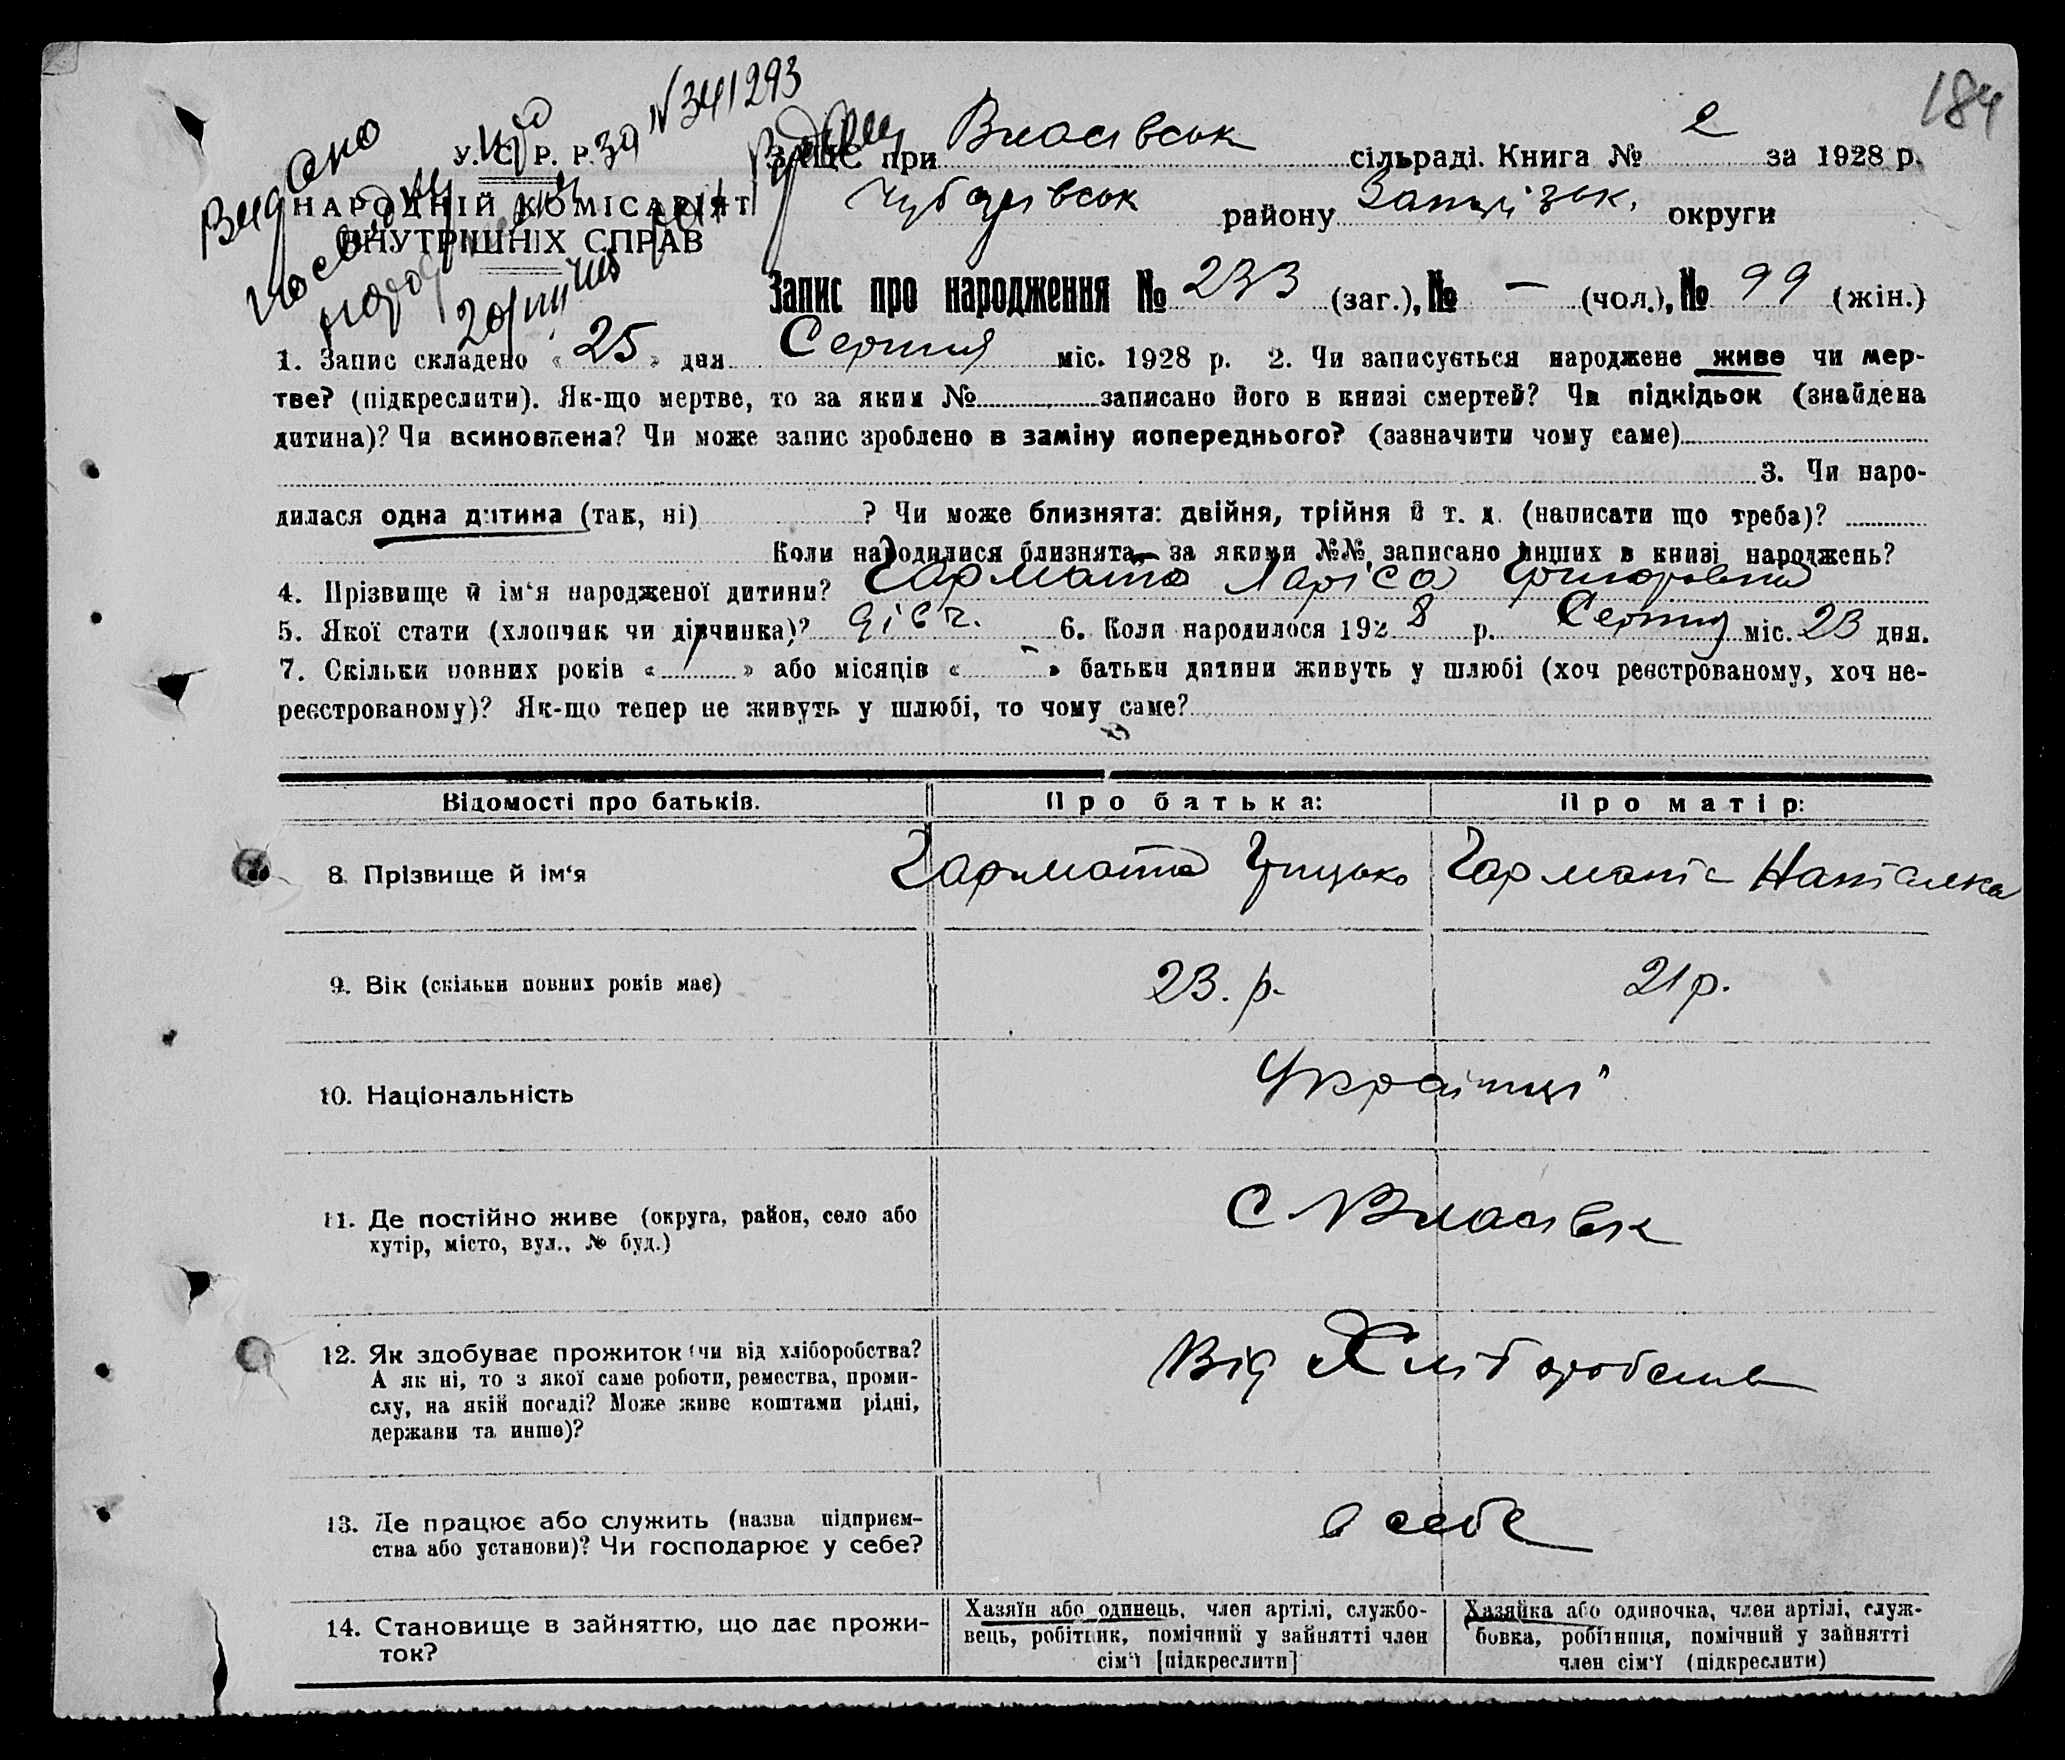 184
Видано
№341293
У. С. Р. Р.
НАРОДНІЙ КОМІСАРІЯТ
ВНУТРІШНІХ СПРАВ
ЗАЦС при Власівськ сільраді. Книга № 2 за 1928 р.
району округи
Запис про народження № 233 (заг.), № — (чол.), № 99 (жін.)
1. Запис складено « 25 » дня Серпня міс. 1928 р. 2. Чи записується народжене живе чи мер-
тве? (підкреслити). Як-що мертве, то за яким № записано його в книзі смертей? Чи підкідьок (знайдена
дитина)? Чи всиновлена? Чи може запис зроблено в заміну попереднього? (зазначити чому саме)
3. Чи наро-
дилася одна дитина (так, ні) ? Чи може близнята: двійня, трійня й т. д. (написати що треба)?
Коли народилися близнята, за якими №№ записано инших в книзі народжень?
4. Прізвище й ім‘я народженої дитини? Гармата Ларіса Григоровна
5. Якої стати (хлопчик чи дівчинка)? дівч. 6. Коли народилося 1928 р. Серпня міс. 23 дня.
7. Скільки повних років « » або місяців « — » батьки дитини живуть у шлюбі (хоч реєстрованому, хоч не-
реєстрованому)? Як-що тепер не живуть у шлюбі, то чому саме?
Відомості про батьків. Про батька: Про матір:
8. Прізвище й ім‘я Гармата Грицько Гармата Наталка
9. Вік (скільки повних років має) 23. р. 21 р.
10. Національність Українці
11. Де постійно живе (округа, район, село або
хутір, місто, вул., № буд.) С Власівк
12. Як здобуває прожиток (чи від хліборобства?
А як ні, то з якої саме роботи, ремества, проми-
слу, на якій посаді? Може живе коштами рідні,
держави та инше)? Від Хліборобства
13. Де працює або служить (назва підприєм-
ства або установи)? Чи господарює у себе? в себе
14. Становище в зайняттю, що дає прожи-
ток?
Хазяїн або одинець, член артілі, службо-
вець, робітник, помічний у зайнятті член
сім‘ї [підкреслити]
Хазяйка або одиночка, член артілі, служ-
бовка, робітниця, помічний у зайнятті
член сім‘ї (підкреслити)